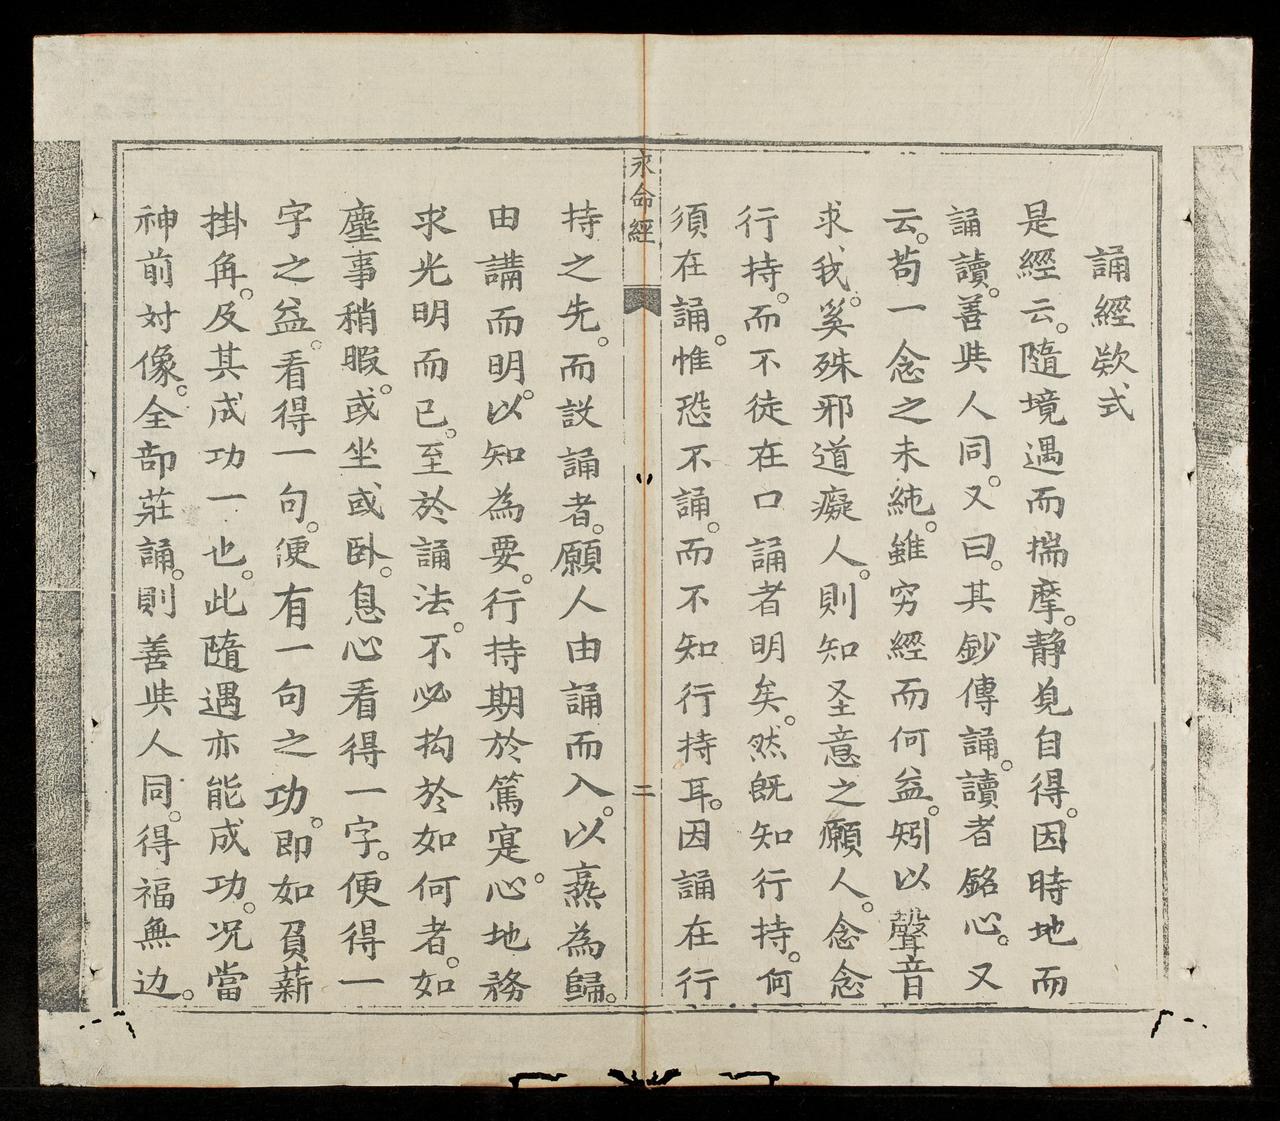 誦經欵式
是經云。隨境遇而揣摩。静見自得。因時地而
誦讀。善與人同。又曰。其鈔傳誦。讀者銘心。又
云。苟一念之未純。雖穷經而何益。矧以聲音
求我。奚殊邪道癡人。則知圣意之願人。念念
行持。而不徒在口誦者明矣。然既知行持。何
須在誦。惟恐不誦。而不知行持耳。因誦在行
永命經
二
持之先。而設誦者。願人由誦而入。以熹為歸。
由講而明。以知為要。行持期於篤寔。心地務
求光明而已。至於誦法。不必拘於如何者。如
塵事稍暇。或坐或卧。息心看得一字。便得一
字之益。看得一句。便有一句之功。即如負薪
掛角。及其成功一也。此隨遇亦能成功。况當
神前对像。全部莊誦。則善與人同。得福無边。